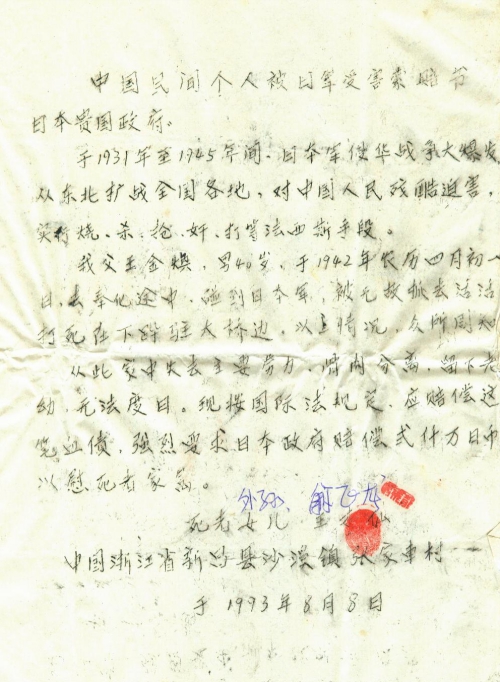 中国民间个人被日军受害索赔书
日本贵国政府。
于1931年至1945年间、日本军侵华战争大爆发
从东北扩战全国各地、对中国人民残酷迫害,
实行烧、杀、抢、奸、打等法西斯手段。
我父王金焕,男40岁,于1942年农历四月初一
日,去奉化途中,碰到日本军,被无故抓去活活
打死在下跸驻大桥边,以上情况,众所周知
从此家中失去主要劳力、骨肉分离,留下老
幼、无法度日。现按国际法规定、应赔偿这
笔血债,强烈要求日本政府赔偿式仟万日币
以慰死者家属。
外孙、俞飞龙
死者女儿 王 仙
中国浙江省新昌县沙溪镇张家车村
于1993年8月8日